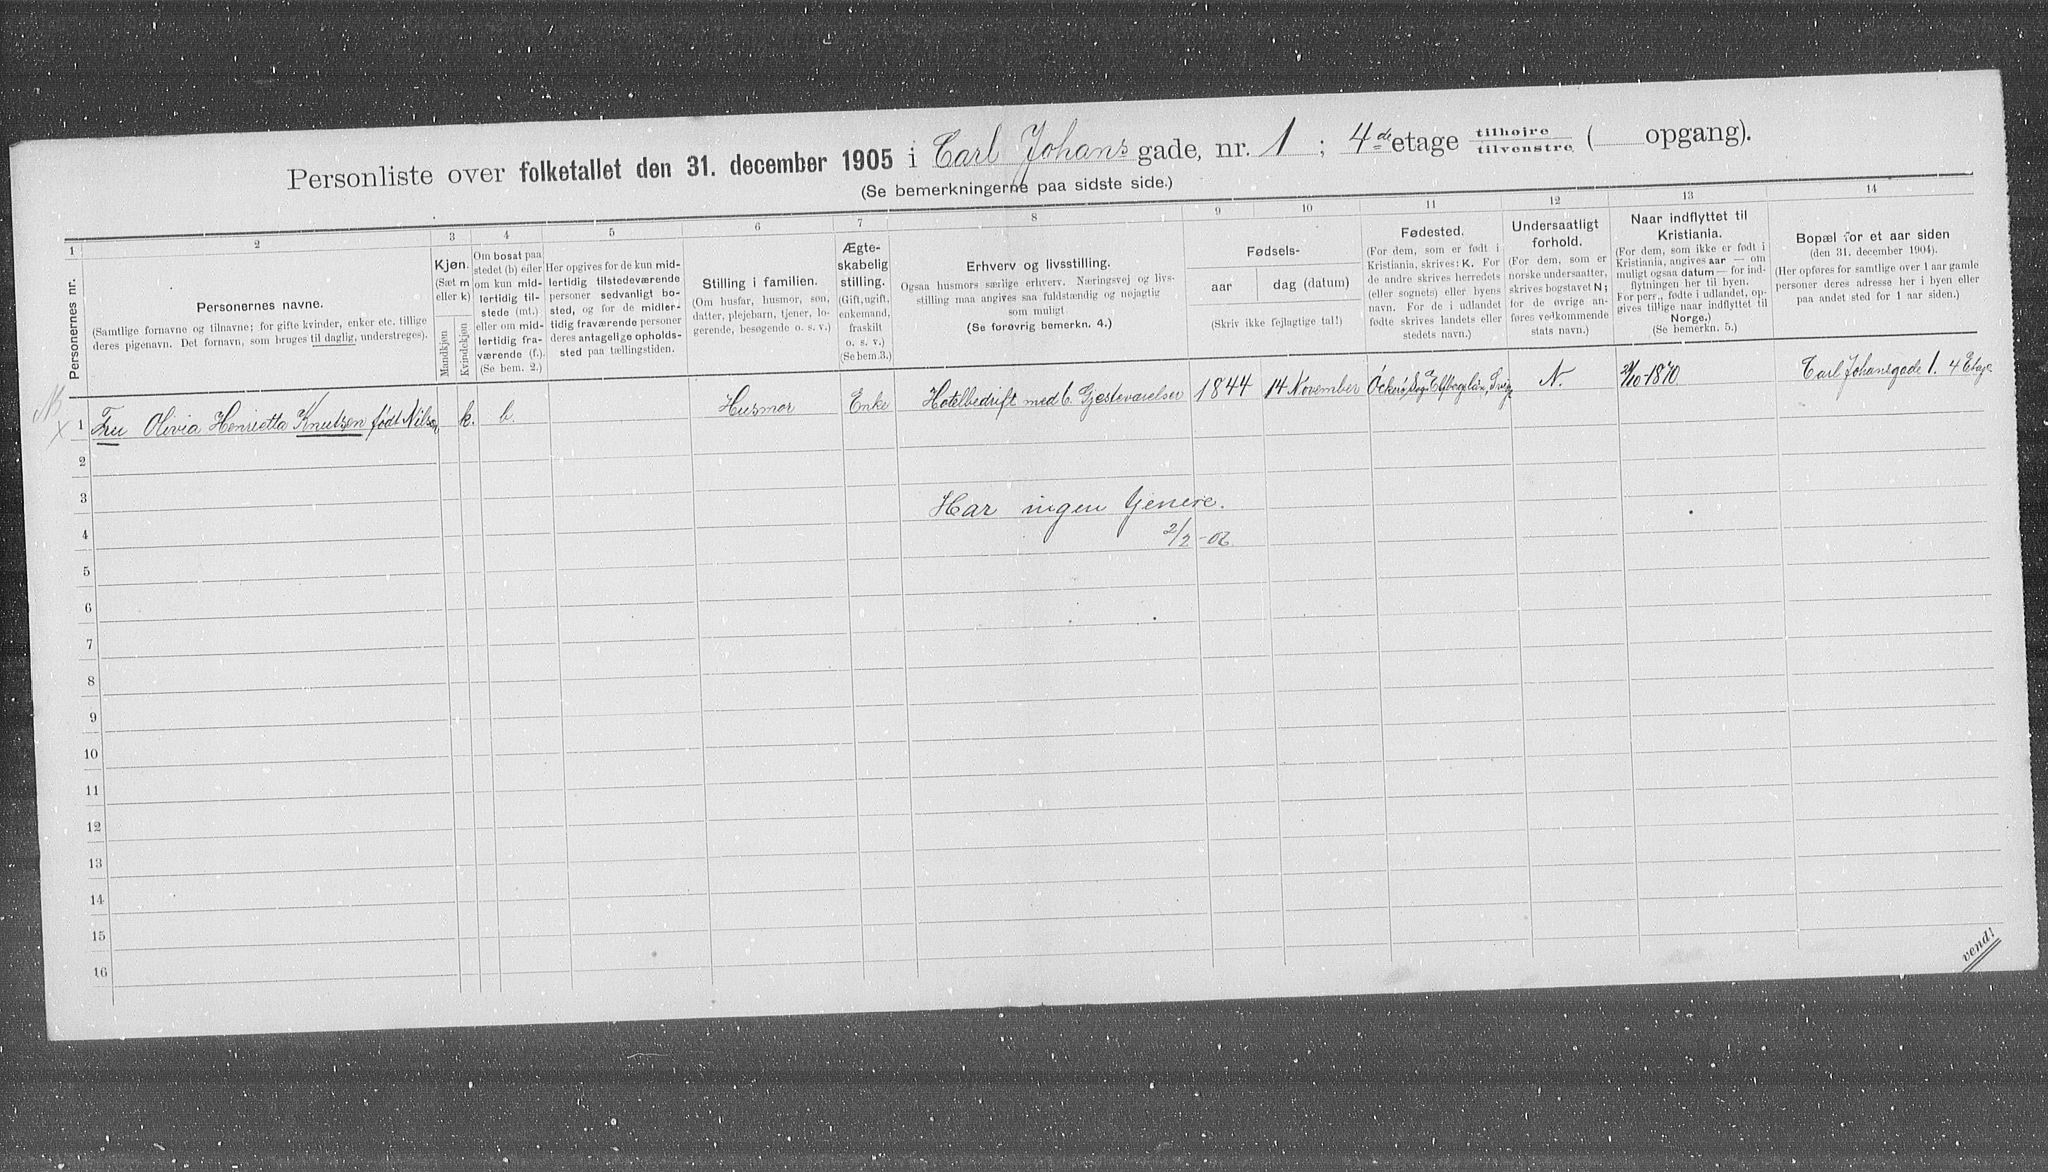 Personliste over folketallet den 31. december 1905 i Carl Johans gade, nr. 1 ; 4de etage tilhøjre tilvenstre ( opgang).
(Se bemerkningerne paa sidste side.)
1 2 3 4 5 6 7 8 9 10 11 12 13 14
Personernes nr.
Personernes navne.
(Samtlige fornavne og tilnavne; for gifte kvinder, enker etc. tillige
deres pigenavn. Det fornavn, som bruges til daglig, understreges).
Kjøn.
(Sæt m
eller k)
Mandkjøn
Kvindekjøn
Om bosat paa
stedet (b) eller
om kun mid-
lertidig til-
stede (mt.)
eller om mid-
lertidig fra-
værende (f.).
(Se bem. 2.)
Her opgives for de kun mid-
lertidig tilstedeværende
personer sedvanligt bo-
sted, og for de midler-
tidig fraværende personer
deres antagelige opholds-
sted paa tællingstiden.
Stilling i familien.
(Om husfar, husmor, søn,
datter, plejebarn, tjener, lo-
gerende, besøgende o. s. v.)
Ægte-
skabelig
stilling.
(Gift, ugift,
enkemand,
fraskilt
o. s. v.)
(Se bem.3.)
Erhverv og livsstilling.
Ogsaa husmors særlige erhverv. Næringsvej og livs-
stilling maa angives saa fuldstændig og nøjagtig
som muligt
(Se forøvrig bemerkn. 4.)
Fødsels-
aar
dag (datum)
(Skriv ikke fejlagtige tal!)
Fødested.
(For dem, som er født i
Kristiania, skrives: K. For
de andre skrives herredets
(eller sognets) eller byens
navn. For de i udlandet
fødte skrives landets eller
stedets navn.)
Undersaatligt
forhold.
(For dem, som er
norske undersaatter,
skrives bogstavet N;
for de øvrige an-
føres vedkommende
stats navn.)
Naar indflyttet til
Kristiania.
(For dem, som ikke er født i
Kristiania, angives aar — om
muligt ogsaa datum — for ind-
flytningen her til byen.
For pers., fødte i udlandet, op-
gives tillige naar indflyttet til
Norge.)
(Se bemerkn. 5.)
Bopæl for et aar siden
(den 31. december 1904).
(Her opføres for samtlige over 1 aar gamle
personer deres adresse her i byen eller
paa andet sted for 1 aar siden.)
1 Fru Olivia Henrietta Knutsen født Nilsen k. b. Husmor Enke Hotelbedrift med 6. Gjesteværelser 1844 14 November N. 1870 Carl Johansgade 1. 4 Etage
2
3 Har ingen tjenere.
4 2/2-06
5
6
7
8
9
10
11
12
13
14
15
16
vend!